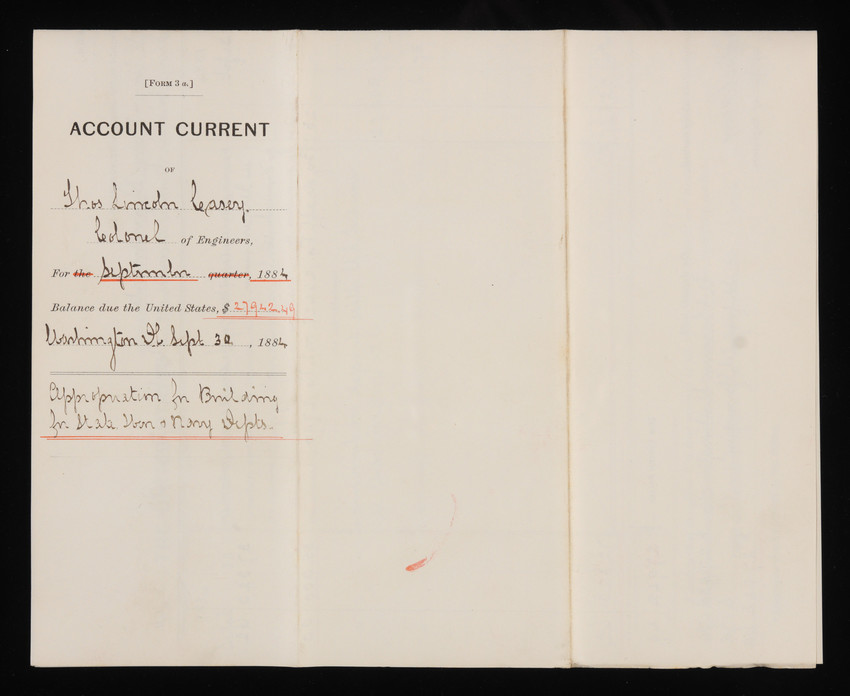 [FORM 3 a.]
ACCOUNT CURRENT
OF
Thos Lincoln Casey.
Colonel of Engineers,
For the September quarter, 1884
Balance due the United States, $ 27942.49
Washington DC Sept 30, 1884
Appropriation for Building
for State War & Navy Depts.